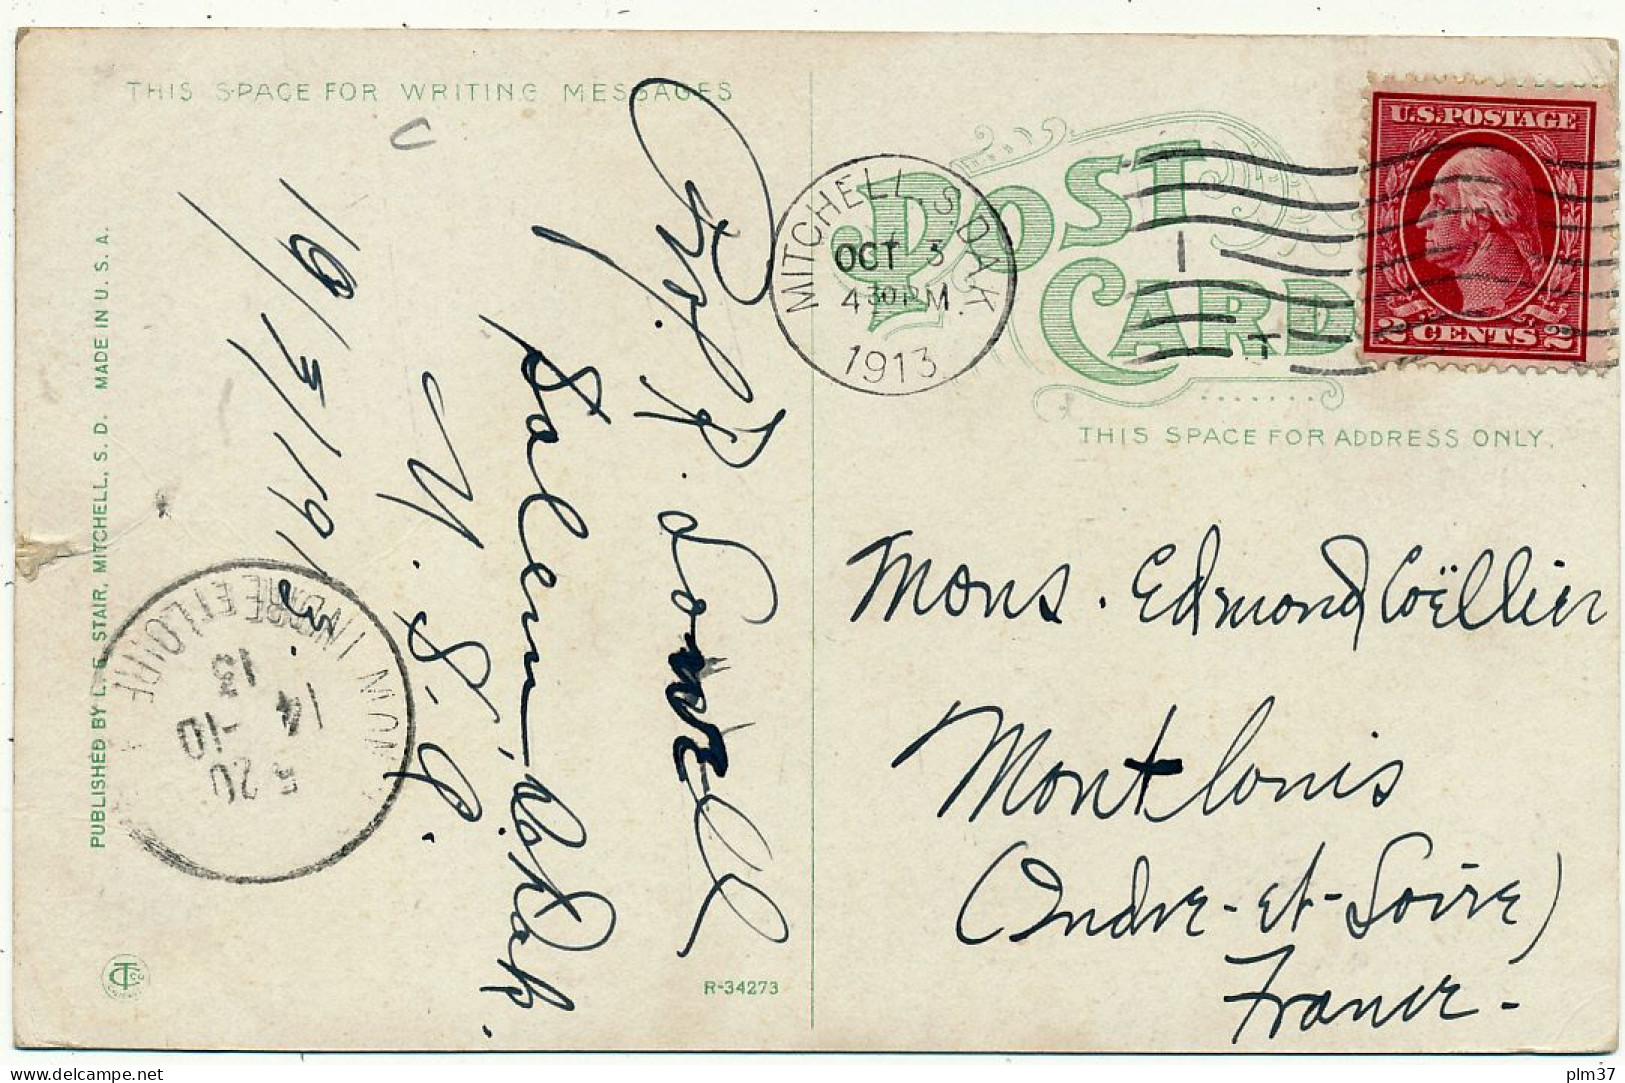 THIS SPACE FOR WRITING MESSAGES
Prof. P. Lowell
Salem, So. Dak.
U. S. A.
10/5/1913.
PUBLISHED BY L. E. STAIR, MITCHELL, S. D. MADE IN U. S. A.
INDRE ET LOIRE
5 20
14 -10
13
CT
R-34273
POST CARD
MITCHELL, S. DAK
OCT 5
4 30 PM.
1913
1
U.S. POSTAGE
2 CENTS 2
THIS SPACE FOR ADDRESS ONLY.
Mons. Edmond Coëllier
Montlouis
(Indre-et-Loire)
France-
delcampe.net
plm37